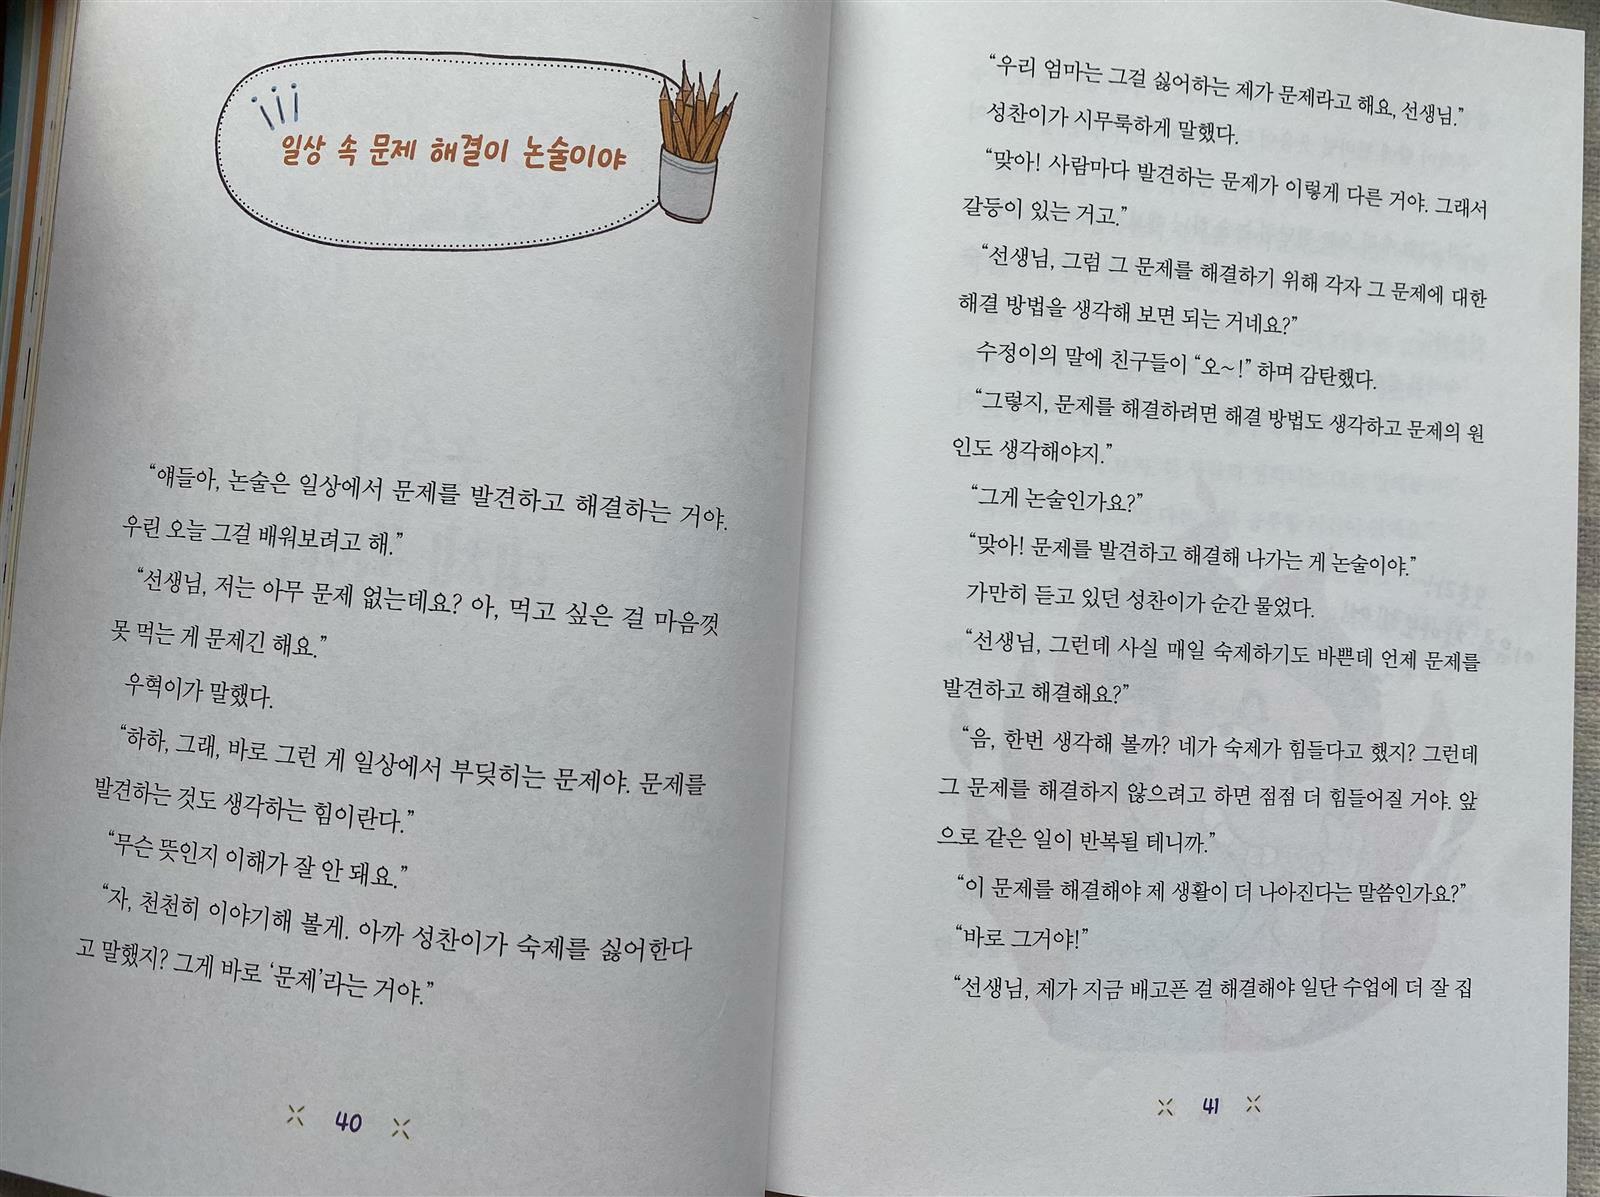 일상 속 문제 해결이 논술이야
“얘들아, 논술은 일상에서 문제를 발견하고 해결하는 거야.
우린 오늘 그걸 배워보려고 해.”
“선생님, 저는 아무 문제 없는데요? 아, 먹고 싶은 걸 마음껏
못 먹는 게 문제긴 해요.”
우혁이가 말했다.
“하하, 그래, 바로 그런 게 일상에서 부딪히는 문제야. 문제를
발견하는 것도 생각하는 힘이란다.”
“무슨 뜻인지 이해가 잘 안 돼요.”
“자, 천천히 이야기해 볼게. 아까 성찬이가 숙제를 싫어한다
고 말했지? 그게 바로 ‘문제’라는 거야.”
40
“우리 엄마는 그걸 싫어하는 제가 문제라고 해요, 선생님.”
성찬이가 시무룩하게 말했다.
“맞아! 사람마다 발견하는 문제가 이렇게 다른 거야. 그래서
갈등이 있는 거고.”
“선생님, 그럼 그 문제를 해결하기 위해 각자 그 문제에 대한
해결 방법을 생각해 보면 되는 거네요?”
수정이의 말에 친구들이 “오~!” 하며 감탄했다.
“그렇지, 문제를 해결하려면 해결 방법도 생각하고 문제의 원
인도 생각해야지.”
“그게 논술인가요?”
“맞아! 문제를 발견하고 해결해 나가는 게 논술이야.”
가만히 듣고 있던 성찬이가 순간 물었다.
“선생님, 그런데 사실 매일 숙제하기도 바쁜데 언제 문제를
발견하고 해결해요?”
“음, 한번 생각해 볼까? 네가 숙제가 힘들다고 했지? 그런데
그 문제를 해결하지 않으려고 하면 점점 더 힘들어질 거야. 앞
으로 같은 일이 반복될 테니까.”
“이 문제를 해결해야 제 생활이 더 나아진다는 말씀인가요?”
“바로 그거야!”
“선생님, 제가 지금 배고픈 걸 해결해야 일단 수업에 더 잘 집
41